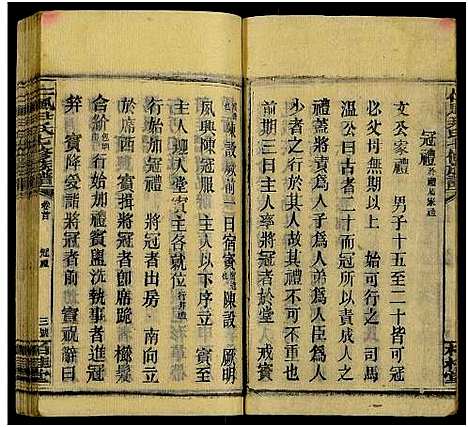 冠禮
文公家禮 男子十五至二十皆可冠
必父母無期以上 始可行之 司馬
溫公曰冠者成人之道也所以責成人之
禮蓋將責為人子為人弟為人臣為人少
者之行於其人故其禮不可不重也
前期三日主人告於祠堂 戒賓
陳設 厥前一日宿賓 陳設 厥明
夙興陳冠服 主人以下序立 賓至
主人迎入堂 賓主各就位
行始加禮 將冠者出房 南向立
於席西 賓揖將冠者即席跪 櫛髮
合紒 行始加禮 賓盥洗執事者進冠
笄 賓降受 詣將冠者前 賓祝辭曰
卷首 冠禮 三號